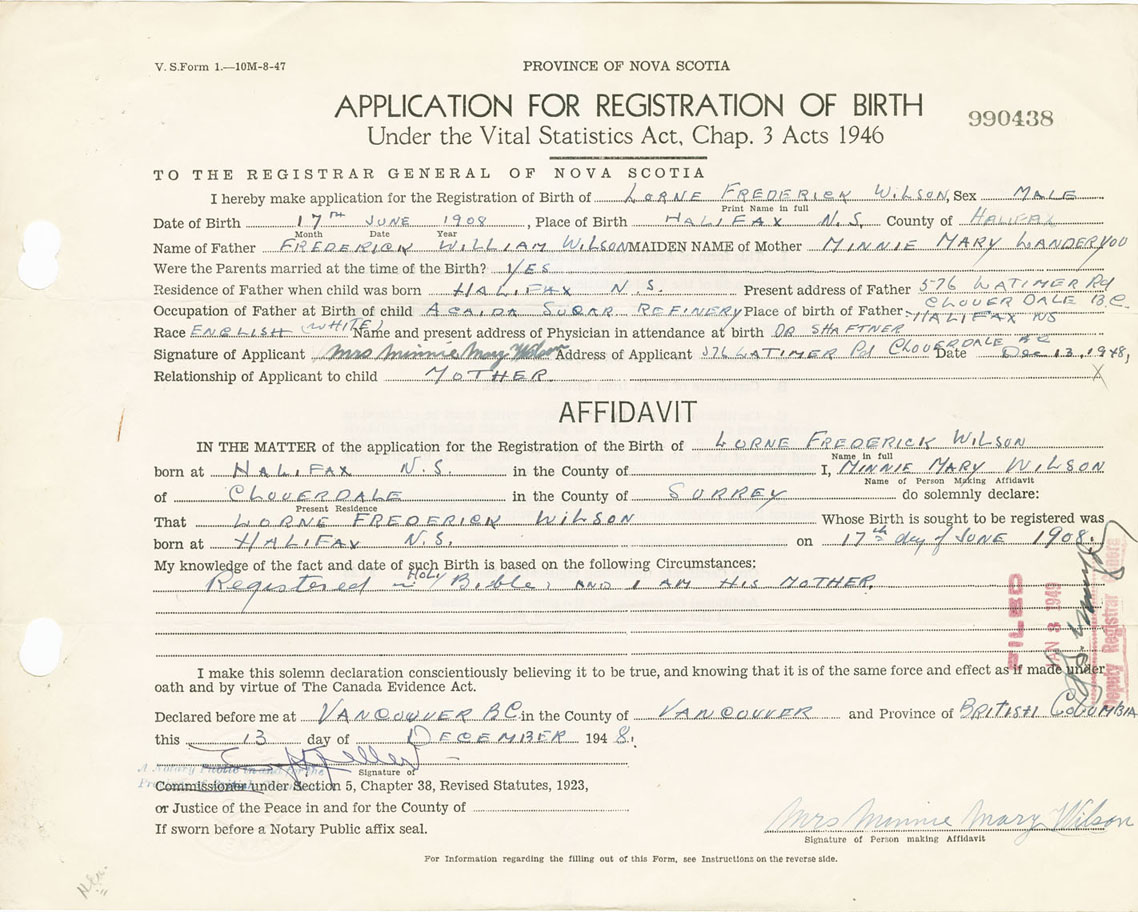 V. S.Form 1.—10M-8-47
PROVINCE OF NOVA SCOTIA
APPLICATION FOR REGISTRATION OF BIRTH
990438
Under the Vital Statistics Act, Chap. 3 Acts 1946
TO THE REGISTRAR GENERAL OF NOVA SCOTIA
I hereby make application for the Registration of Birth of LORNE FREDERICK WILSON, Sex MALE
Print Name in full
Date of Birth 17TH JUNE 1908, Place of Birth HALIFAX N.S. County of HALIFAX
Month Date Year
Name of Father FREDERICK WILLIAM WILSON MAIDEN NAME of Mother MINNIE MARY
Were the Parents married at the time of the Birth? YES
Residence of Father when child was born HALIFAX N.S. Present address of Father 576 LATIMER Rd
CLOVERDALE B.C.
Occupation of Father at Birth of child ACAIDA SUGAR REFINERY Place of birth of Father HALIFAX NS
Race ENGLISH (WHITE) Name and present address of Physician in attendance at birth DR SHAFTNER
Signature of Applicant Mrs Minnie Mary Wilson Address of Applicant 576 LATIMER Rd CLOVERDALE BC Date Dec 13, 1948,
Relationship of Applicant to child MOTHER. X
AFFIDAVIT
IN THE MATTER of the application for the Registration of the Birth of LORNE FREDERICK WILSON
Name in full
born at HALIFAX N.S. in the County of I, MINNIE MARY WILSON
Name of Person Making Affidavit
of CLOVERDALE in the County of SURREY do solemnly declare:
Present Residence
That LORNE FREDERICK WILSON Whose Birth is sought to be registered was
born at HALIFAX N.S. on 17th day of JUNE 1908.
My knowledge of the fact and date of such Birth is based on the following Circumstances:
Registered in HOLY Bible, AND I AM HIS MOTHER.
FILED
JAN 3 1949
Deputy Registrar
I make this solemn declaration conscientiously believing it to be true, and knowing that it is of the same force and effect as if made under
oath and by virtue of The Canada Evidence Act.
Declared before me at VANCOUVER B.C. in the County of VANCOUVER and Province of BRITISH COLUMBIA
this 13 day of DECEMBER 1948.
Signature of
A Notary Public in and for the
Province of British
Commissioner under Section 5, Chapter 38, Revised Statutes, 1923,
or Justice of the Peace in and for the County of
Mrs Minnie Mary Wilson
If sworn before a Notary Public affix seal.
Signature of Person making Affidavit
For Information regarding the filling out of this Form, see Instructions on the reverse side.